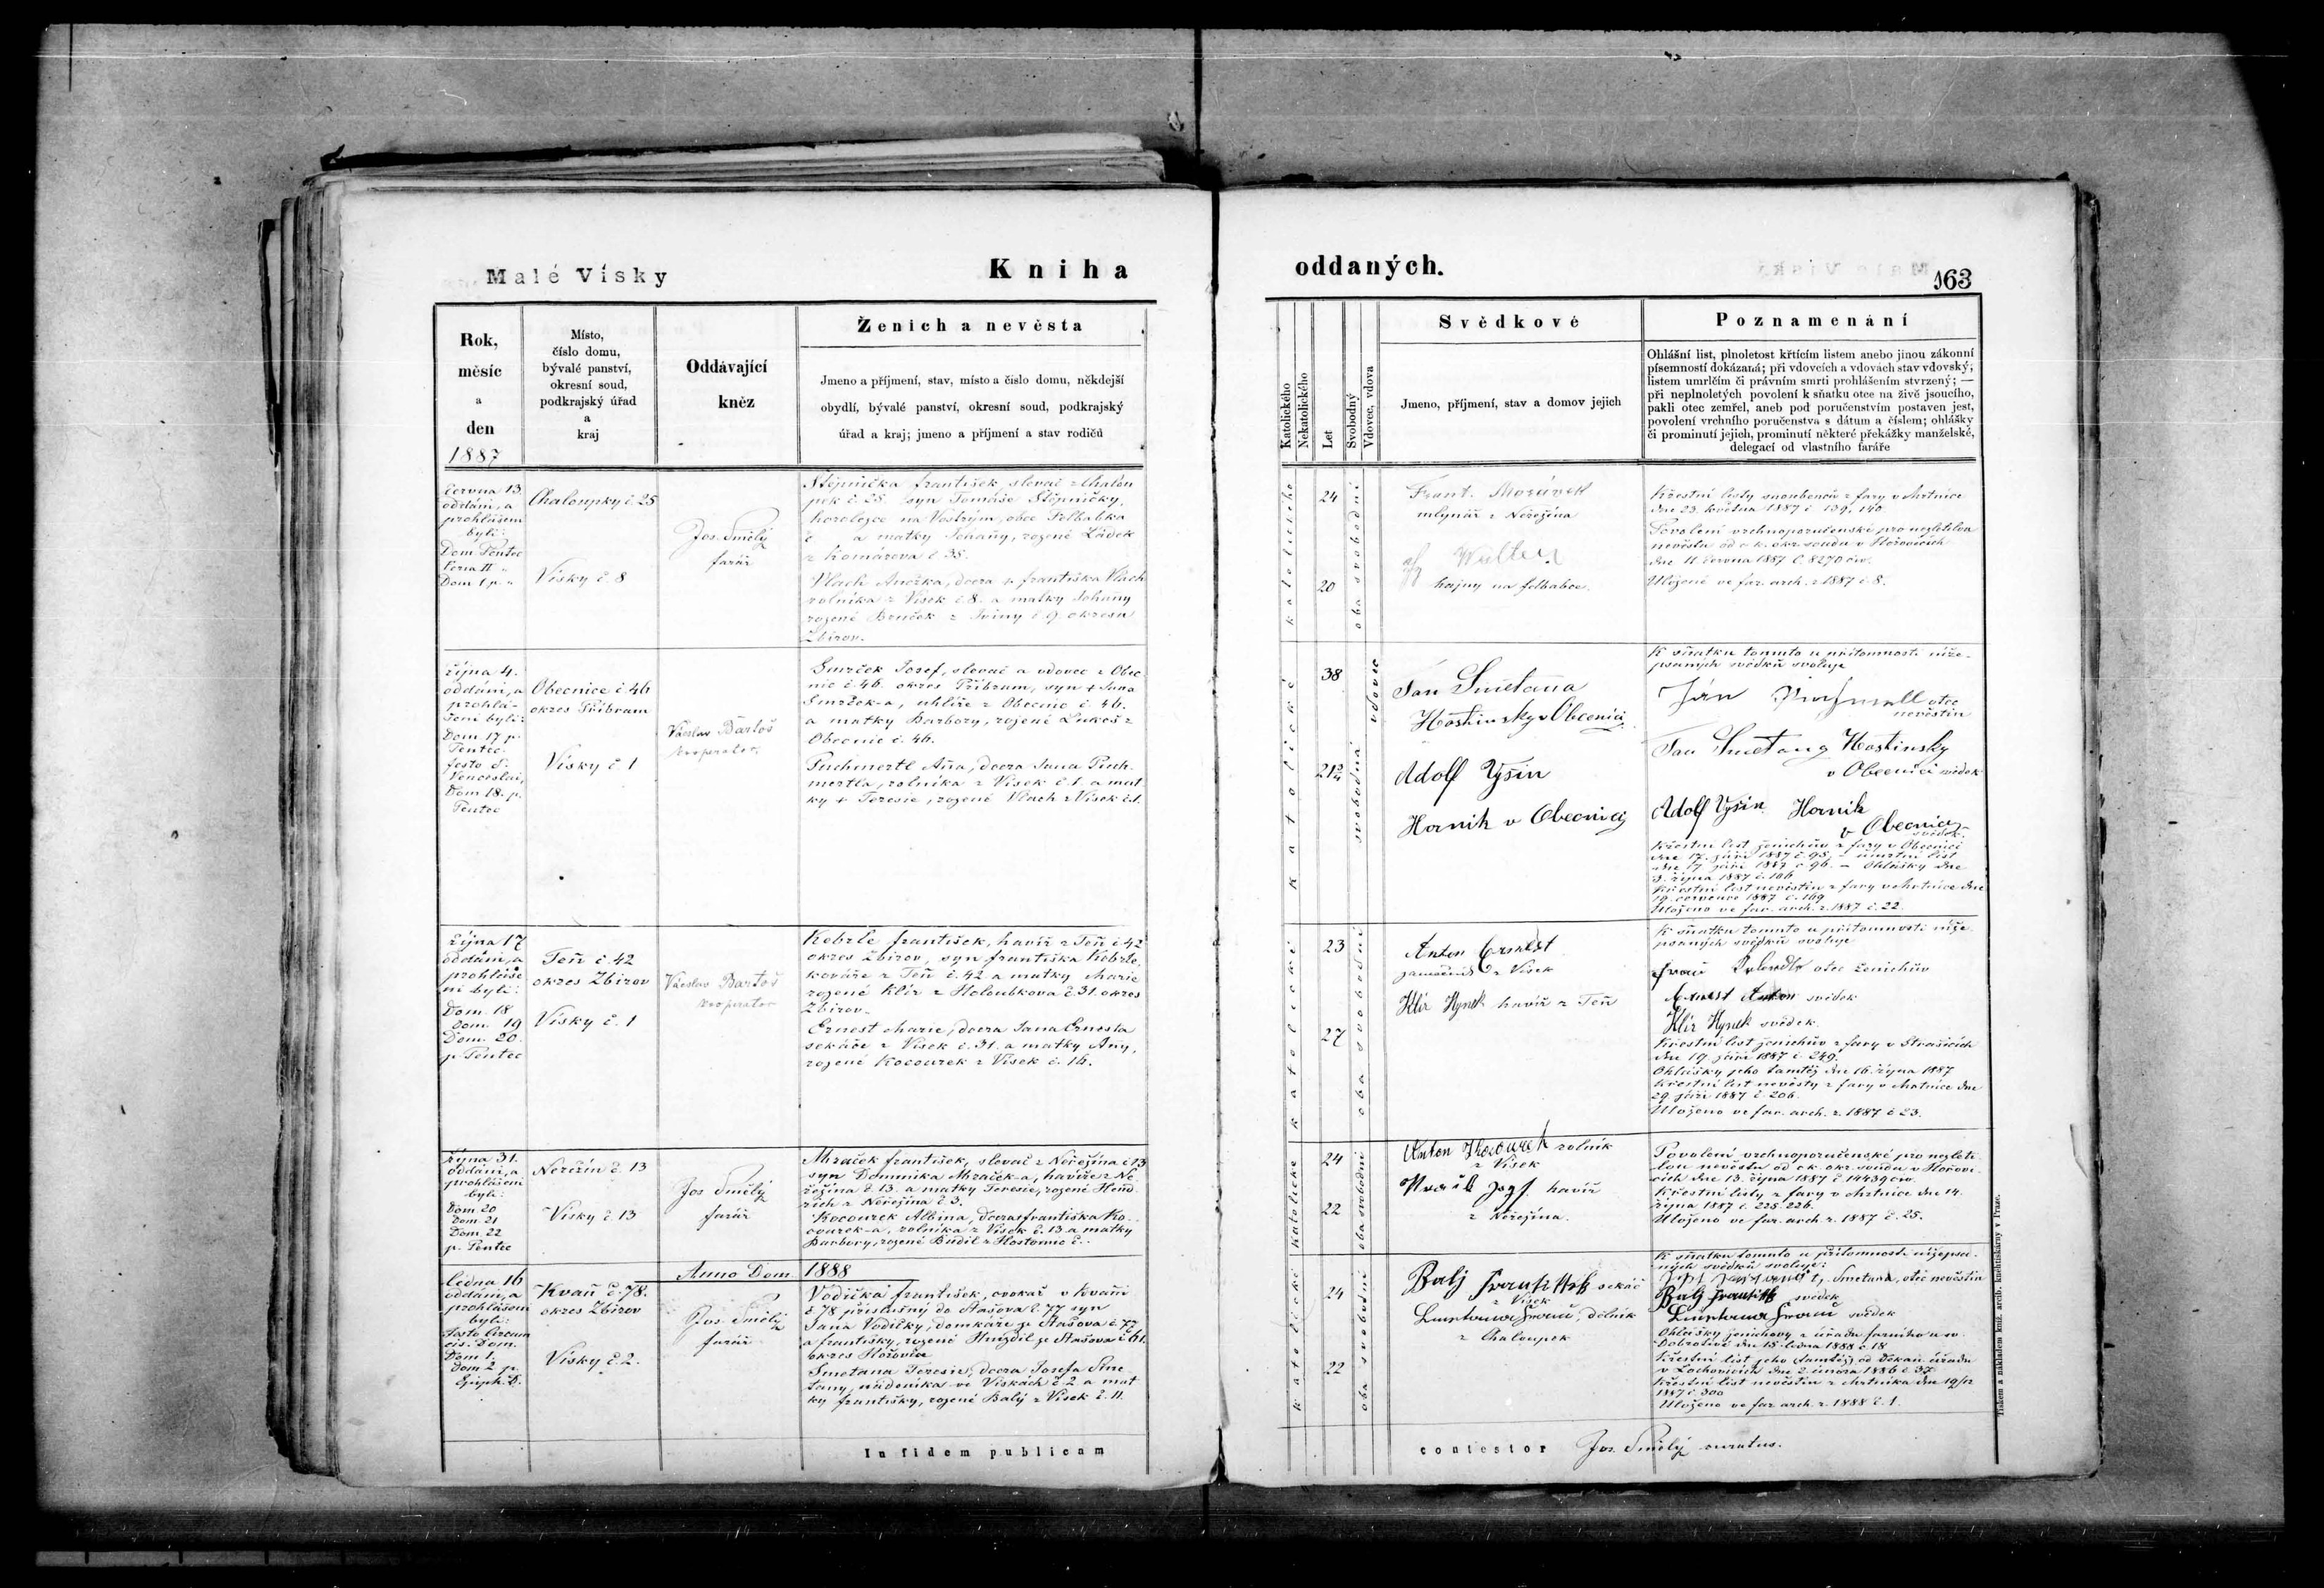 Malé Vísky
Kniha
oddaných.
163
Rok,
měsíc
a
den
1887
Místo,
číslo domu,
bývalé panství,
okresní soud,
podkrajský úřad
a
kraj
Oddávající
kněz
Ženich a nevěsta
Jmeno a příjmení, stav, místo a číslo domu, někdejší
obydlí, bývalé panství, okresní soud, podkrajský
úřad a kraj; jmeno a příjmení a stav rodičů
Katolického
Nekatolického
Let
Svobodný
Vdovec, vdova
Svědkové
Jmeno, příjmení, stav a domov jejich
Poznamenání
Ohlášní list, plnoletost křtícím listem anebo jinou zákonní
písemností dokázaná; při vdovcích a vdovách stav vdovský;
listem umrlčím či právním smrti prohlášením stvrzený; —
při neplnoletých povolení k sňatku otce na živě jsoucího,
pakli otec zemřel, aneb pod poručenstvím postaven jest,
povolení vrchního poručenstva s dátum a číslem; ohlášky
či prominutí jejich, prominutí některé překážky manželské,
delegací od vlastního faráře
června 13.
oddáni, a
prohlášeni
byli:
Dom. Pentec
Feria II "
Dom 1. p. "
Chaloupky č. 25
Vísky č. 8
Jos. Smělý
farář
Štěpnička František, slevač z Chalou
pek č. 25 syn Tomáše Štěpničky,
a matky Johany, rozené Ládek
z Komárova č. 35.
Vlach Anežka, dcera + Františka Vlach
rolníka z Vísek č. 8. a matky Johany
okresu
Zbirov.
katolického
24
20
oba svobodní
Frant. Morávek
mlynář z Neřežína
hajný na Felbabce.
Křestní listy snoubenců z fary v Mrtníce
dne 23. května 1887 č 139, 140
Povolení vrchnoporučenské pro nezletilou
nevěstu od c. k. okr. soudu v Hořovicích
dne 11. června 1887 č. 8270 civ.
Uloženo ve far. arch. z 1887 č. 8.
října 4.
oddáni, a
prohlá-
šeni byli:
Dom 17 p.
Pentec.
festo S.
Venceslai,
Dom 18. p.
Pentec
Obecnice č. 46
okres Příbram
Vísky č 1
Václav Bartoš
kooperator
Smrček Josef, slevač a vdovec z Obec
nic č. 46. okres Příbram, syn + Jana
Smrček-a, uhlíře z Obecnic č. 46.
a matky Barbory, rozené Lukeš z
Obecnic č. 46.
Puchmertl Aňa, dcera Jana Puch
mertla, rolníka z Vísek č. 1. a mat
ky + Teresie, rozené Vlach z Vísek č. 1.
Katolické
38
svobodná
vdovec
Jan Smetana
Hostinsky v Obecnici
Adolf Vyšín
Hornik v Obecnicy
K sňatku tomuto u přítomnosti níže-
psaných svědků svoluje
Ján
otec
nevěstin
Jan Smetana Hostinsky
v Obecnici svědek
Adolf Vyšín Hornik
v Obecnici
svědek.
Křestní list ženichův z fary v Obecnici
dne 17. září 1887 č. 95, — úmrtní list
dne 17 září 1887 č 96. — Ohlášky dne
3. října 1887 č. 106
Křestní list nevěstin z fary v Mrtníce dne
19. července 1887 č. 169
Uloženo ve far. arch. z. 1887 č. 22.
října 17
oddáni, a
prohláše
ni byli:
Dom. 18
Dom. 19
Dom. 20.
p. Pentec
Teň č. 42
okres Zbirov
Vísky č. 1
Václav Bartoš
kooperator
Kebrle František, havíř z Teň č. 42
okres Zbirov, syn Františka Kebrle,
kováře z Teň č. 42 a matky Marie
rozené Klír z Holoubkova č. 31. okres
Zbirov.
Ernest Marie, dcera Jana Ernesta
sekáče z Vísek č. 31. a matky Aňy,
rozené Kocourek z Vísek č. 16.
katolické
23
27
oba svobodní
Anton Ernest
z Vísek
Klír Hynek havíř z Teň
K sňatku tomuto u přítomnosti níže
psaných svědků svoluje
otec ženichův
Arnest Anton svědek
Klír Hynek svědek.
Křestní list ženichův z fary v Strašicích
dne 19. září 1887 č. 249.
Ohlášky jeho tamtéž dne 16. října 1887
Křestní list nevěsty z fary v Mrtníce dne
29. září 1887 č. 206.
Uloženo ve far. arch. z. 1887 č 23.
října 31.
oddáni, a
prohlášeni
byli:
Dom. 20
Dom. 21
Dom. 22
p. Pentec
Neřežín č. 13
Vísky č. 13
Jos Smělý
farář
Mraček František, slevač z Neřežína č 13
syn Dominika Mraček-a, havíře z Ne
řežína č. 13. a matky Teresie, rozené Hend
rich z Neřežína č. 3.
Kocourek Albina, dcera Františka Ko-
courek-a, rolníka z Vísek č. 13 a matky
Barbory, rozené Budil z Hostomic č.
katolické
24
22
oba svobodní
Anton Kocourek rolník
z Vísek
havíř
z Neřežína.
Povolení vrchnoporučenské pro nezleti-
lou nevěstu od c. k. okr. soudu v Hořovi-
cích dne 13. října 1887 č 14439 civ.
Křestní listy z fary v Mrtníce dne 14.
října 1887 č. 225. 226.
Uloženo ve far. arch. z. 1887 č. 25.
Anno Dom 1888
ledna 16
oddáni, a
prohlášeni
byli:
festo Circum
cis. Dom.
Dom 1.
Dom 2 p.
Epiph. D.
Kvaň č. 78.
okres Zbirov
Vísky č. 2.
Jos. Smělý
farář
Vodička František, cvokař v Kvani
č 78 příslušný do Stašova č. 77 syn
Jana Vodičky, domkáře ze Stašova č. 77
a Františky, rozené Hnízdil ze Stašova č 61.
okres Hořovice
Smetana Teresie, dcera Josefa Sme
tany, nádeníka ve Vískách č. 2 a mat
ky Františky, rozené Balý z Vísek č. 11.
katolické
24
24
22
oba svobodní
Balý František sekáč
z Vísek
dělník
z Chaloupek
K sňatku tomuto u přítomnosti nížepsa-
ných svědků svoluje:
tj. Smetana, otec nevěstin
Balý František svědek
svědek
Ohlášky ženichovy z úřadu farního u sv.
Dobrotivé dne 15. ledna 1888 č. 18
Křestní list jeho (tamtéž) od Děkan. úřadu
v Žochovicích dne 2. února 1886 č. 37
Křestní list nevěstin z Mrtníka dne 19/12
1887 č. 300
Uloženo ve far. arch. z. 1888 č. 1.
In fidem publicam
contestor Jos. Smělý curatus.
Tiskem a nákladem kníž. arcib. knihtiskárny v Praze.